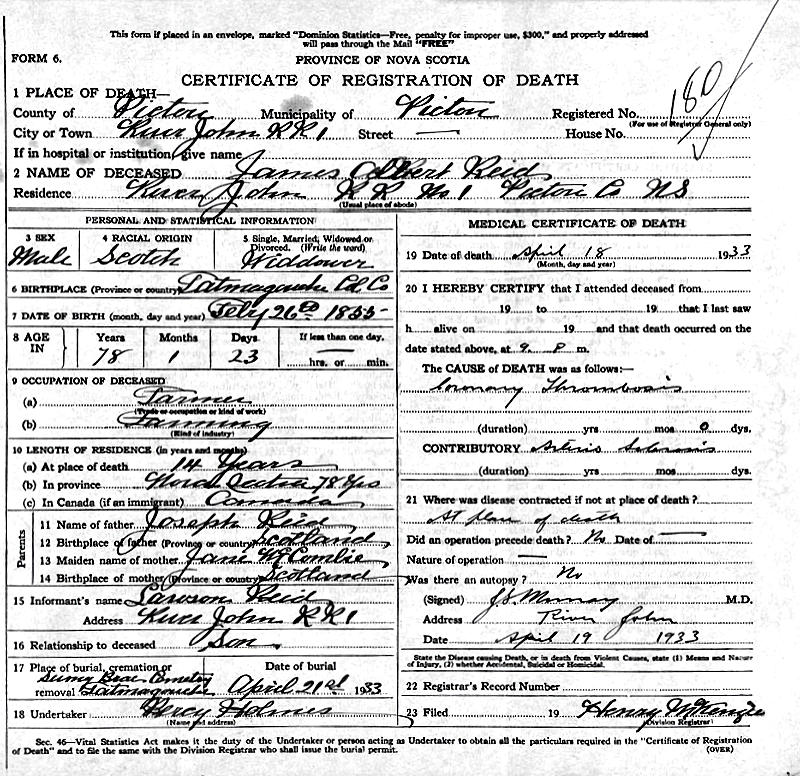 This form if placed in an envelope, marked "Dominion Statistics—Free, penalty for improper use, $300," and properly addressed
will pass through the Mail "FREE"
FORM 6.
PROVINCE OF NOVA SCOTIA
CERTIFICATE OF REGISTRATION OF DEATH
180
1 PLACE OF DEATH—
County of Pictou Municipality of Pictou Registered No.
(For use of Registrar General only)
City or Town River John RR 1 Street — House No.
If in hospital or institution, give name
2 NAME OF DECEASED James Albert Reid
Residence River John RR No 1 Pictou Co NS
(Usual place of abode)
PERSONAL AND STATISTICAL INFORMATION
3 SEX 4 RACIAL ORIGIN 5 Single, Married, Widowed or Divorced. (Write the word)
Male Scotch Widdower
6 BIRTHPLACE (Province or country) Tatmagouche Col Co
7 DATE OF BIRTH (month, day and year) Feby 26th 1855
8 AGE IN Years Months Days If less than one day.
78 1 23 — hrs. or min.
9 OCCUPATION OF DECEASED
(a) Farmer
(Trade or occupation or kind of work)
(b) Farming
(Kind of industry)
10 LENGTH OF RESIDENCE (in years and months)
(a) At place of death 14 Years
(b) In province Nova Scotia 78 Yrs
(c) In Canada (if an immigrant) Canada
Parents
11 Name of father Joseph Reid
12 Birthplace of father (Province or country) Scotland
13 Maiden name of mother Jane McComlie
14 Birthplace of mother (Province or country) Scotland
15 Informant's name Lawson Reid
Address River John RR 1
16 Relationship to deceased Son
17 Place of burial, cremation or removal Date of burial
Cemetery
Tatmagouche April 21st 1933
18 Undertaker Percy Holmes
(Name and address)
MEDICAL CERTIFICATE OF DEATH
19 Date of death April 18 1933
(Month, day and year)
20 I HEREBY CERTIFY that I attended deceased from
19 to 19 that I last saw
h alive on 19 and that death occurred on the
date stated above, at 9. P m.
The CAUSE of DEATH was as follows:—
Coronary Thrombosis
(duration) yrs mos 0 dys.
CONTRIBUTORY Arterio Sclerosis
(duration) yrs mos dys.
21 Where was disease contracted if not at place of death?
At place of death
Did an operation precede death? No Date of —
Nature of operation —
Was there an autopsy? No
(Signed) J.S. Murray M.D.
Address River John
Date April 19 1933
State the Disease causing Death, or in death from Violent Causes, state (1) Means and Nature
of Injury, (2) whether Accidental, Suicidal or Homicidal.
22 Registrar's Record Number
23 Filed 19 Henry McKenzie
(Division Registrar)
Sec. 46—Vital Statistics Act makes it the duty of the Undertaker or person acting as Undertaker to obtain all the particulars required in the "Certificate of Registration
of Death" and to file the same with the Division Registrar who shall issue the burial permit.
(OVER)